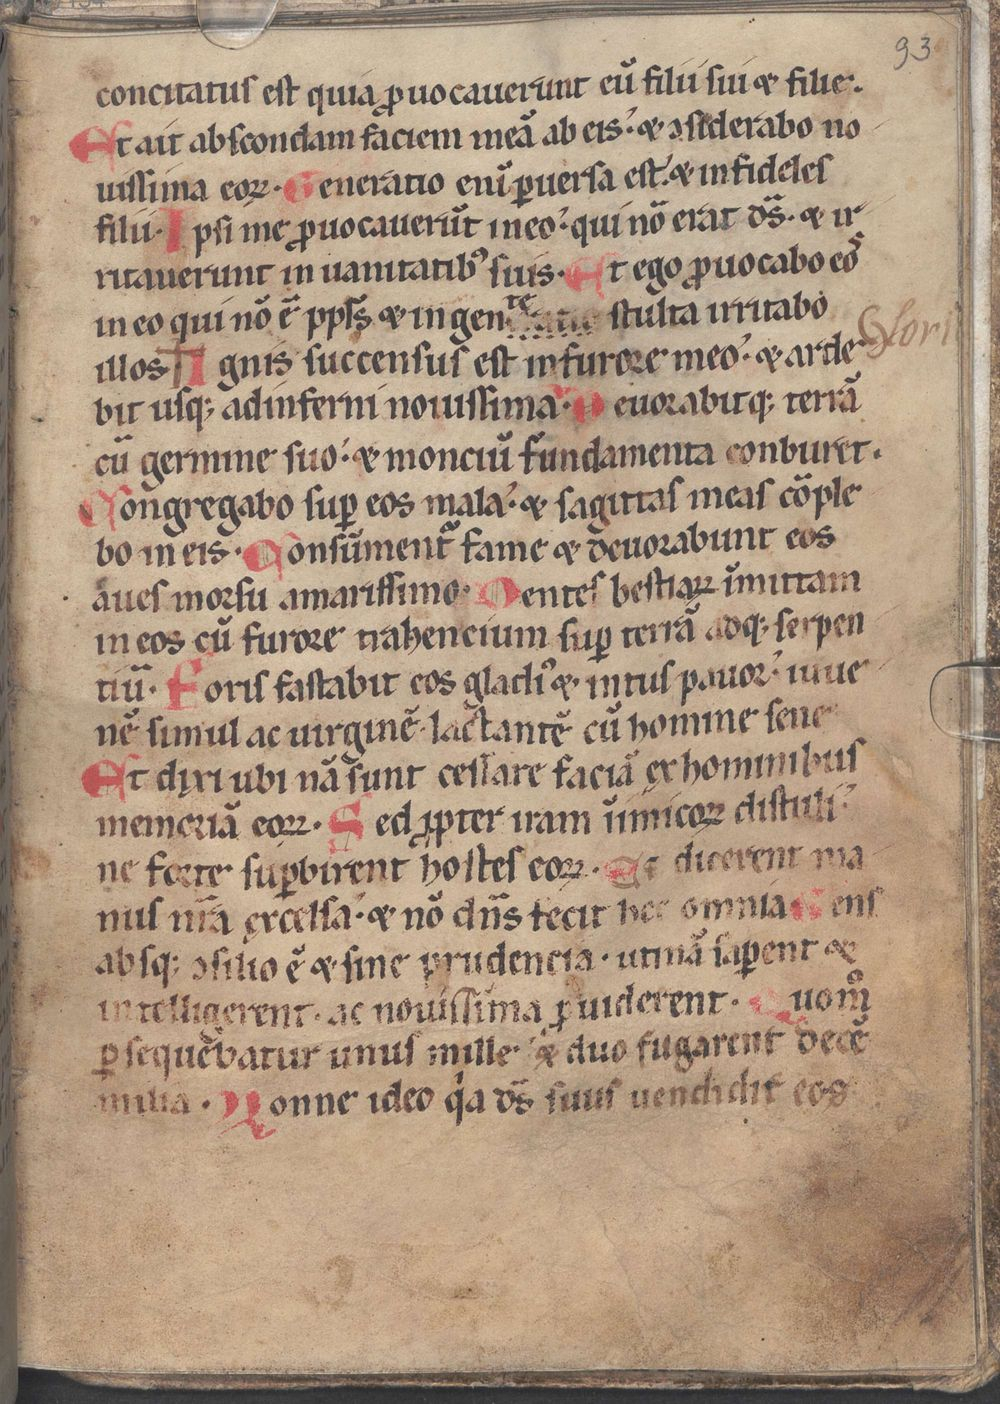 93
concitatus est quia ꝓuocauerunt eū filii sui ⁊ filie.
Et ait abscondam faciem meā ab eis. ⁊ ɔsiderabo no
uissima eoꝝ. Generatio eni̅ ꝑuersa est. ⁊ infideles
filii. Ipsi me ꝓuocauerūt in eo. qui nō erat ds̄. ⁊ ir
ritauerunt in uanitatibꝰ suis. Et ego ꝓuocabo eos
in eo qui nō ē ppl̄s ⁊ in gente stulta irritabo
illos Ignis succensus est in furore meo. ⁊ arde
bit usqꝫ ad inferni nouissima. Deuorabitqꝫ terrā
cū germine suo. ⁊ monciū fundamenta conburet.
Congregabo suꝑ eos mala. ⁊ sagittas meas cōple
bo in eis. Consument᷑ fame ⁊ deuorabunt eos
aues morsu amarissimo. Dentes bestiaꝝ īmittam
in eos cū furore trahencium suꝑ terrā adqꝫ serpen
tiū. Foris fastabit eos gladiꝰ ⁊ intus pauor. iuue
nē simul ac uirginē. lactantē cū homine sene
Et dixi ubi nā sunt cessare faciā ex hominibus
memoriā eoꝝ. Sed ꝓpter iram īimicoꝝ distuli.
ne forte suꝑbirent hostes eoꝝ. Et dicerent ma
nus nr̄a excelsa. ⁊ nō dn̄s fecit hec omnia Gens
absqꝫ ɔsilio ē ⁊ sine prudencia. utinā saꝑent ⁊
intelligerent. ac nouissima ꝓuiderent. Quom̊
ꝑsequebatur unus mille. ⁊ duo fugarent decē
milia. Nonne ideo qia ds̄ suus uendidit eos